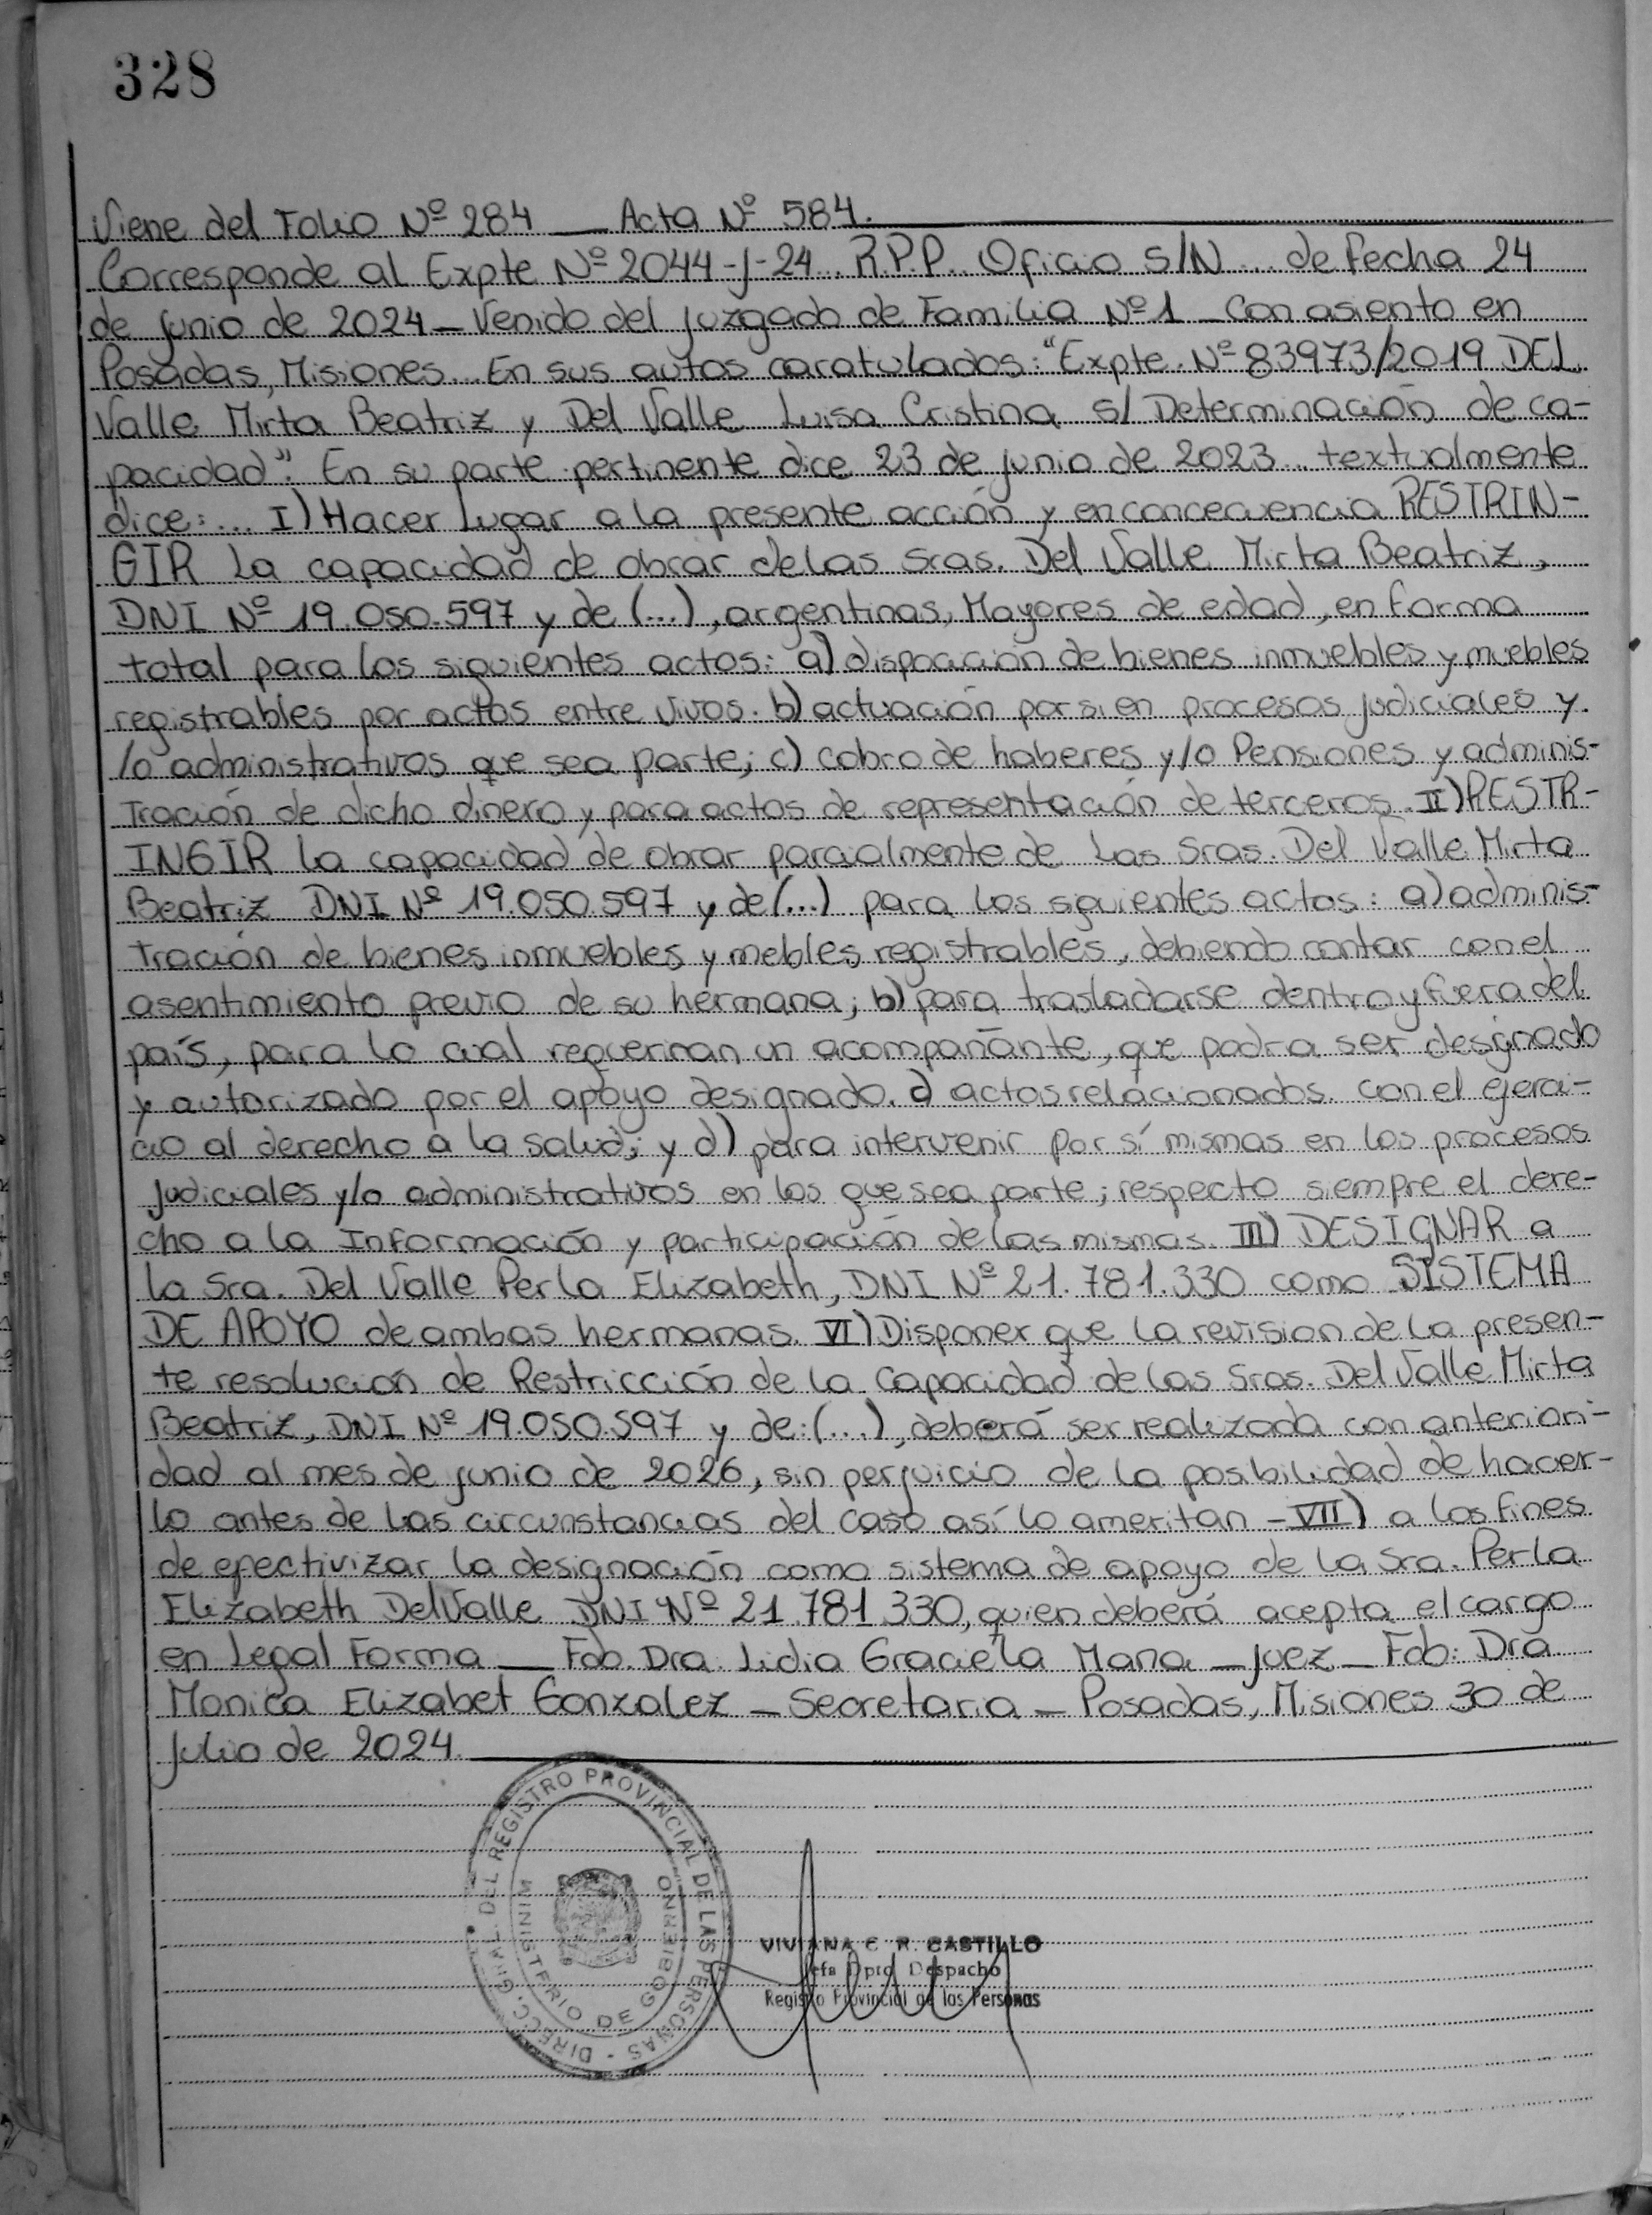 328
Viene del Folio Nº 284 — Acta Nº 584.
Corresponde al Expte Nº 2044-J-24... R.P.P.. Oficio S/N.... de Fecha 24
de junio de 2024 — Venido del juzgado de Familia Nº 1 — Con asiento en
Posadas, Misiones... En sus autos caratulados: "Expte. Nº 83973/2019 DEL
Valle Mirta Beatriz y Del Valle Luisa Cristina S/ Determinación de ca-
pacidad". En su parte pertinente dice 23 de junio de 2023... textualmente
dice:... I) Hacer Lugar a la presente acción y en concecuencia RESTRIN-
GIR La capacidad de obrar de las Sras. Del Valle Mirta Beatriz,
DNI Nº 19.050.597 y de (...), argentinas, Mayores de edad, en forma
total para los siguientes actos: a) disposición de bienes inmuebles y muebles
registrables por actos entre vivos. b) actuación por si en procesos judiciales y.
/o administrativos que sea parte; c) cobro de haberes y/o Pensiones y adminis-
tración de dicho dinero y para actos de representación de terceros. II) RESTR-
INGIR la capacidad de obrar parcialmente de Las Sras. Del Valle Mirta
Beatriz DNI Nº 19.050.597 y de (...) para los siguientes actos: a) adminis-
tración de bienes inmuebles y mebles registrables, debiendo contar con el
asentimiento previo de su hermana; b) para trasladarse dentro y fuera del
país, para lo cual requeriran un acompañante, que podra ser designado
y autorizado por el apoyo designado. c) actos relacionados con el ejerci-
cio al derecho a la salud; y d) para intervenir por sí mismas en los procesos
judiciales y/o administrativos en los que sea parte; respecto siempre el dere-
cho a la Información y participación de las mismas. III) DESIGNAR a
la Sra. Del Valle Perla Elizabeth, DNI Nº 21.781.330 como SISTEMA
DE APOYO de ambas hermanas. VI) Disponer que la revision de la presen-
te resolución de Restricción de la Capacidad de las Sras. Del Valle Mirta
Beatriz, DNI Nº 19.050.597 y de: (...), deberá ser realizada con anteriori-
dad al mes de junio de 2026, sin perjuicio de la posbilidad de hacer-
lo antes de las circunstancias del caso así lo ameritan — VII) a los fines
de efectivizar la designación como sistema de apoyo de la Sra. Perla
Elizabeth Del Valle DNI Nº 21.781.330, quien deberá acepta el cargo
en Legal Forma — Fdo. Dra. Lidia Graciela Mana — Juez — Fdo: Dra
Monica Elizabet Gonzalez — Secretaria — Posadas, Misiones 30 de
Julio de 2024.
DIRECC. GRAL. DEL REGISTRO PROVINCIAL DE LAS PERSONAS
MINISTERIO DE GOBIERNO
VIVIANA C. R. CASTILLO
Jefa Dpto Despacho
Registro Provincial de las Personas